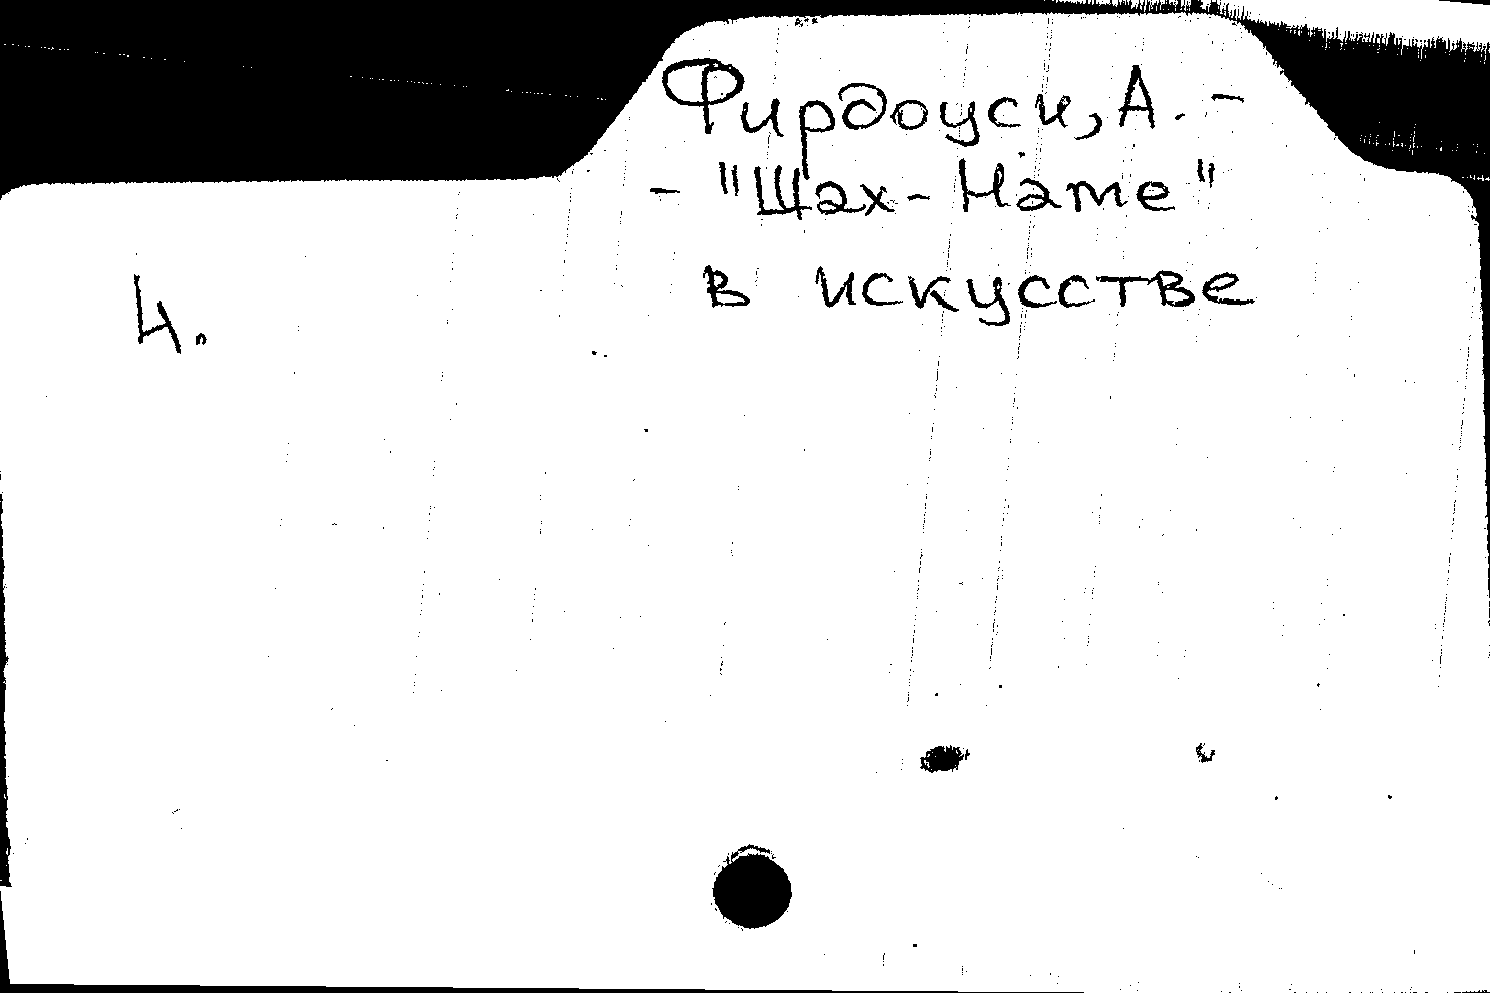 Фирдоуси, А. -
- "Шах-Наме"
в искусстве
4.